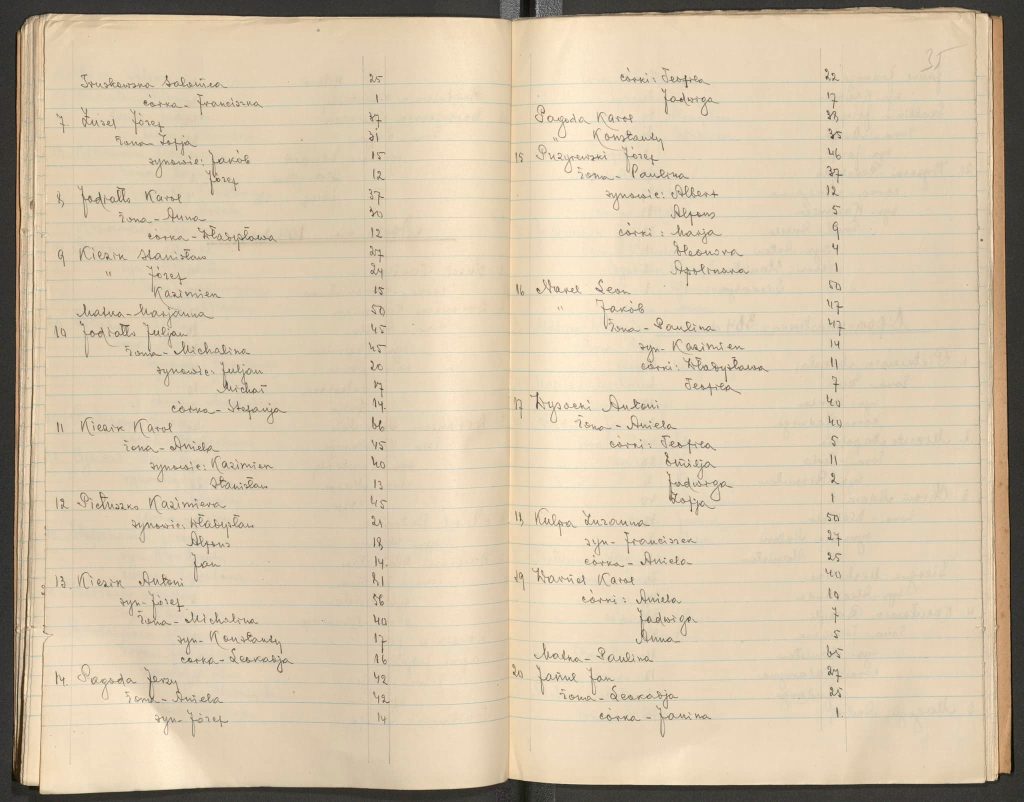 Truskowska Salomea 25
córka - Franciszka 1
7 Zuzel Józef 37
żona Zofja 31
synowie: Jakób 15
Józef 12
8, Jodiałło Karol 37
żona - Anna 30
córka - Władysława 12
9 Kiezik Stanisław 27
" Józef 24
Kazimierz 15
Matka - Marjanna 50
10 Jodiałło Juljan 45
żona - Michalina 45
synowie: Juljan 20
Michał 17
córka - Stefanja 14
11 Kiezik Karol 66
żona - Aniela 45
synowie: Kazimierz 40
Stanisław 13
12 Pietuszko Kazimiera 45
synowie: Władysław 21
Alfons 18
Jan 14
13. Kiezik Antoni 81
syn - Józef 56
żona - Michalina 40
syn - Konstanty 17
córka - Leokadja 16
14. Pagoda Jerzy 42
żona - Aniela 42
syn - Józef 14
35
córki: Teofila 22
Jadwiga 17
Pagoda Karol 38
" Konstanty 35
15 Puzyrewski Józef 46
żona - Paulina 37
synowie: Albert 12
Alfons 5
córki: Marja 9
Eleonora 4
Apolinara 1
16 Nurel Leon 50
" Jakób 47
żona - Paulina 47
syn - Kazimierz 14
córki: Władysława 11
Teofila 7
17 Wysocki Antoni 40
żona - Aniela 40
córki: Teofila 5
Emilja 11
Jadwiga 2
Zofja 1
18, Kulpa Zuzanna 50
syn - Franciszek 27
córka - Aniela 25
29 Waruel Karol 40
córki: Aniela 10
Jadwiga 7
Anna 5
Matka - Paulina 65
20 Jan 27
żona - Leokadja 25
córka - Janina 1.